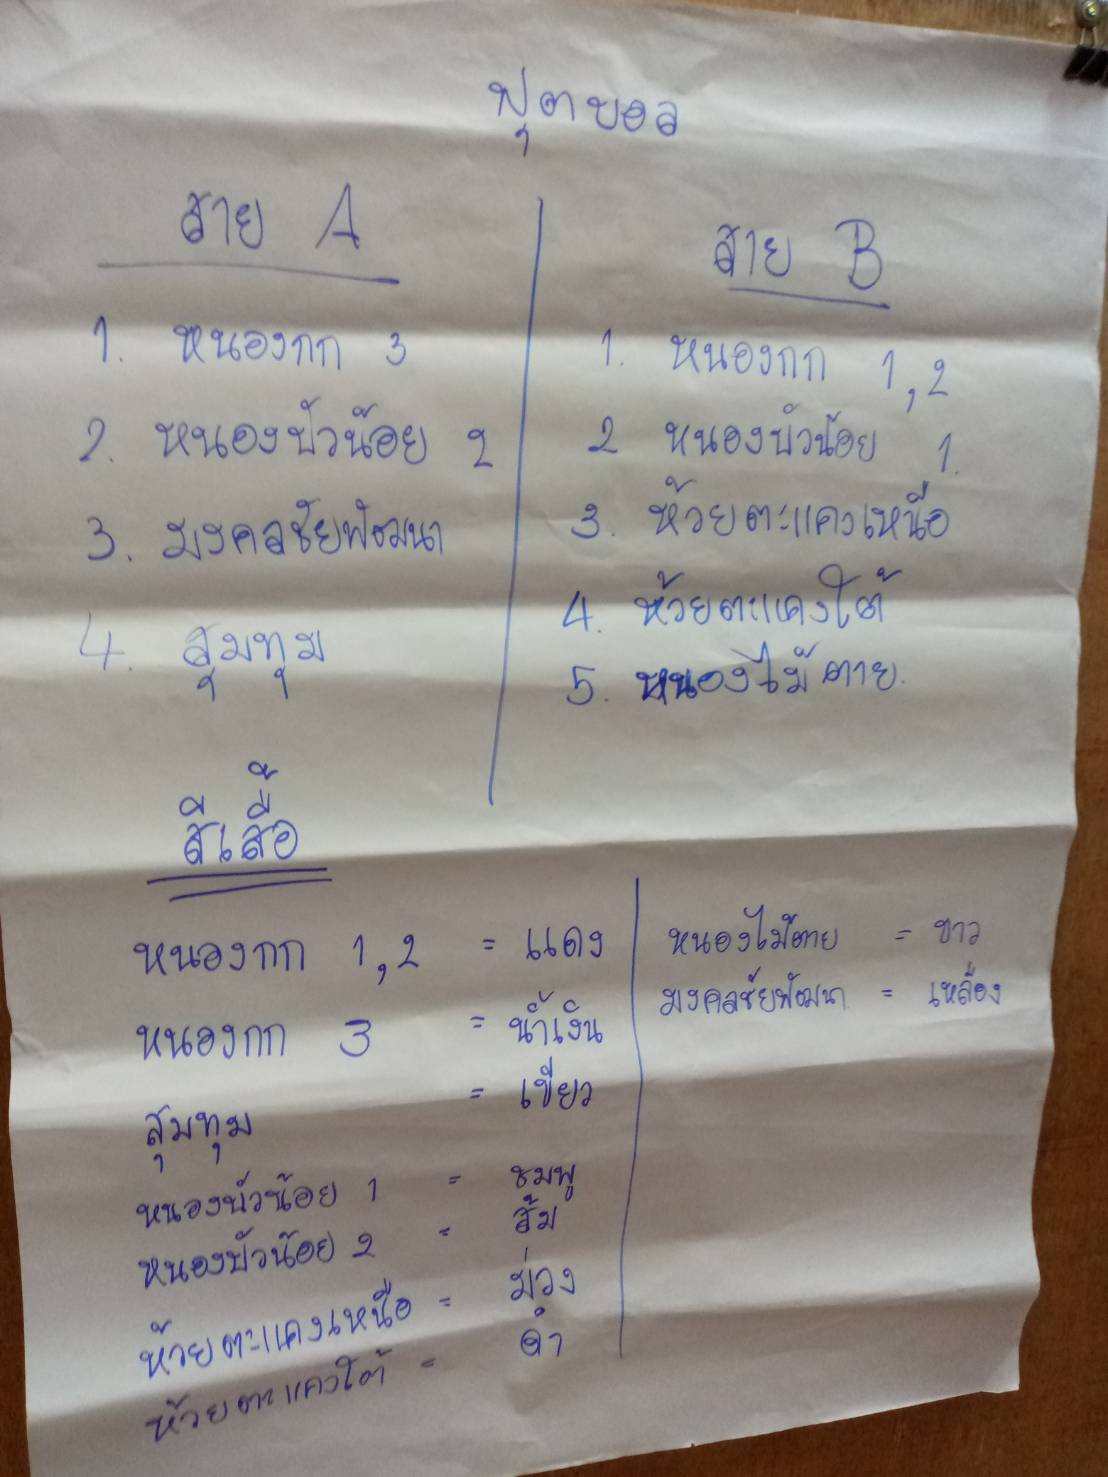 ฟุตบอล
สาย A
1. หนองกก 3
2. หนองบัวน้อย 2
3. มงคลชัยพัฒนา
4. สุมทุม
สาย B
1. หนองกก 1,2
2 หนองบัวน้อย 1.
3. ห้วยตะแคงเหนือ
4. ห้วยตะแคงใต้
5. หนองไม้ตาย.
สีเสื้อ
หนองกก 1,2 = แดง
หนองกก 3 = น้ำเงิน
สุมทุม = เขียว
หนองบัวน้อย 1 = ชมพู
หนองบัวน้อย 2 = ส้ม
ห้วยตะแคงเหนือ = ม่วง
ห้วยตะแคงใต้ = ดำ
หนองไม้ตาย = ขาว
มงคลชัยพัฒนา = เหลือง